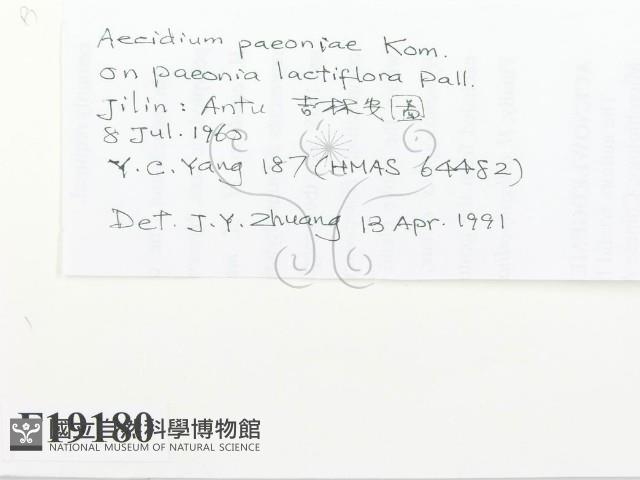 Aecidium paeoniae Kom.
on paeonia lactiflora Pall.
Jilin: Antu 吉林安圖
8 Jul. 1960
Y. C. Yang 187 (HMAS 64482)
Det. J. Y. Zhuang 13 Apr. 1991
F19180
國立自然科學博物館
NATIONAL MUSEUM OF NATURAL SCIENCE